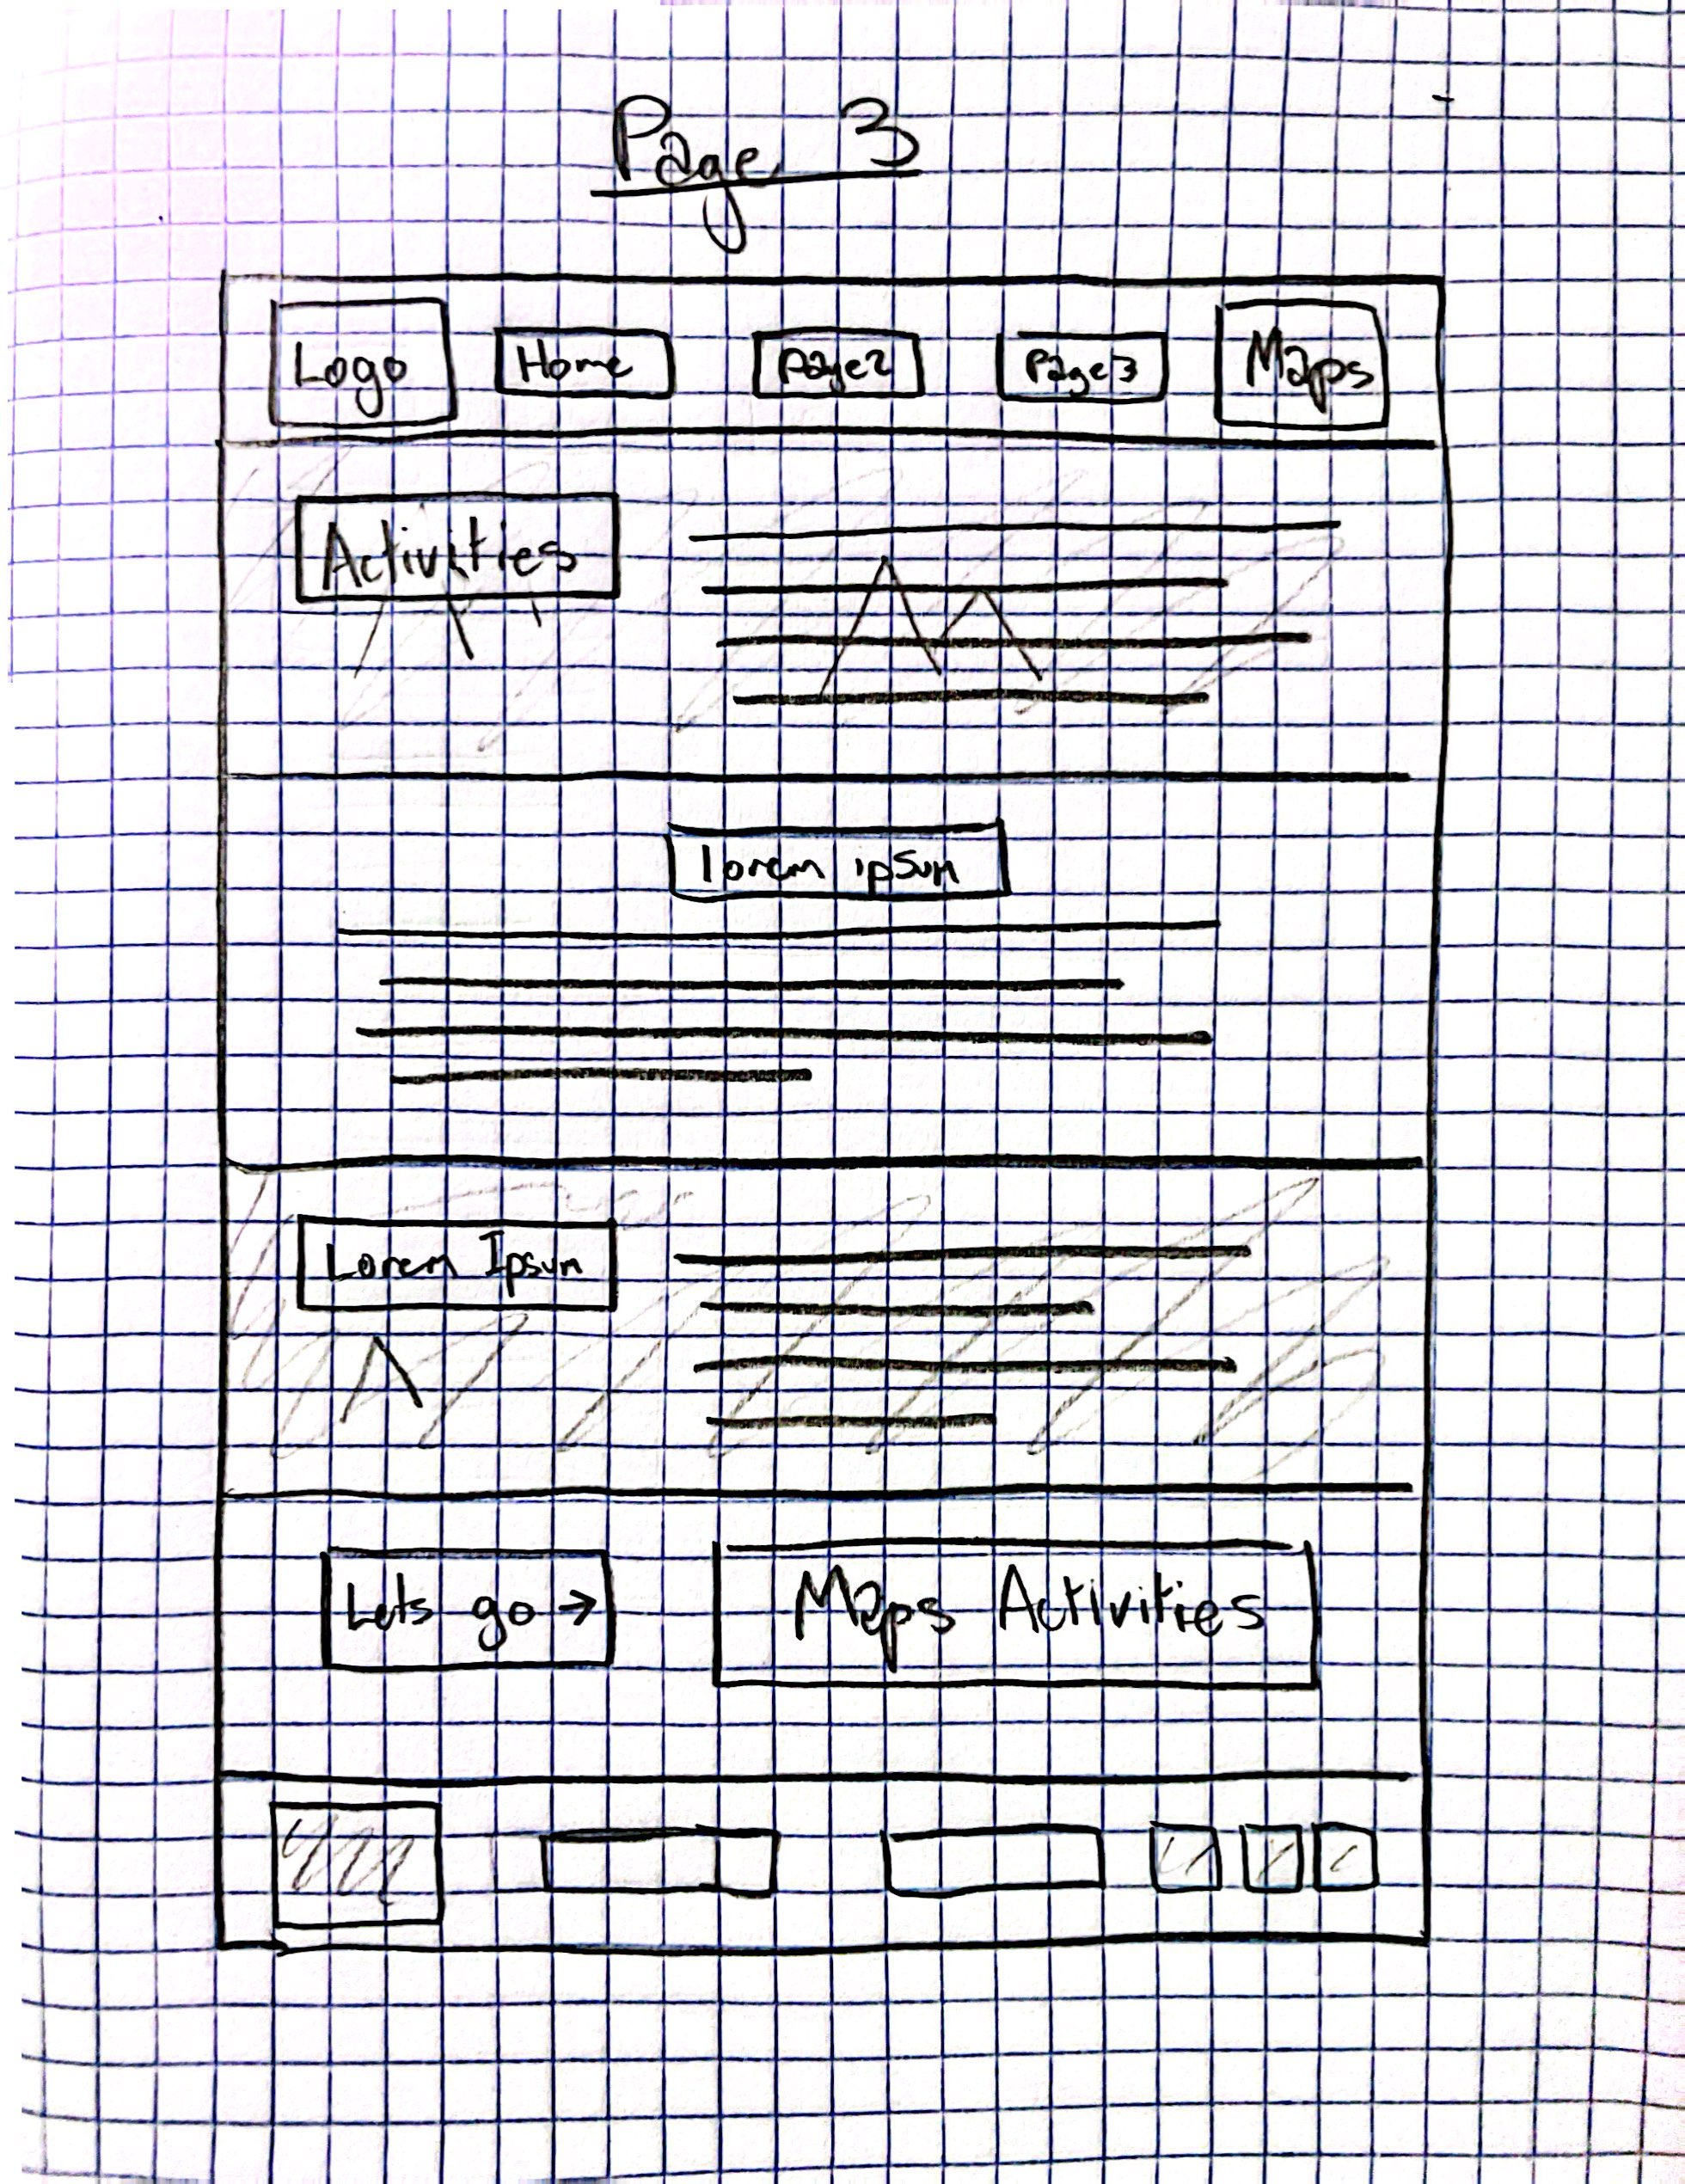 Page 3
Logo Home Page2 Page3 Maps
Activities
lorem ipsum
Lorem Ipsum
Lets go → Maps Activities